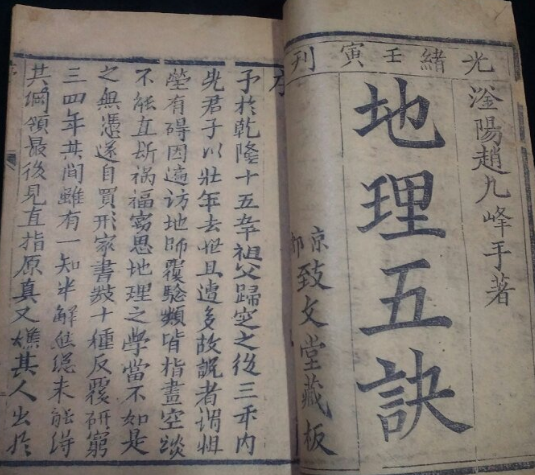 光緒壬寅刊
滏陽趙九峰手著
地理五訣
京都致文堂藏板
序
予於乾隆十五年祖父歸空之後三年内
先君子以壯年去世且遭多故說者謂祖
塋有碍因遍访地师覆騐類皆指畫空談
不能直斷祸福窃思地理之学當不如是
之無憑遂自買形家書数十種反覆研窮
三四年其间雖有一知半解然總未能得
其綱領最後見直指原真又樵其人出於